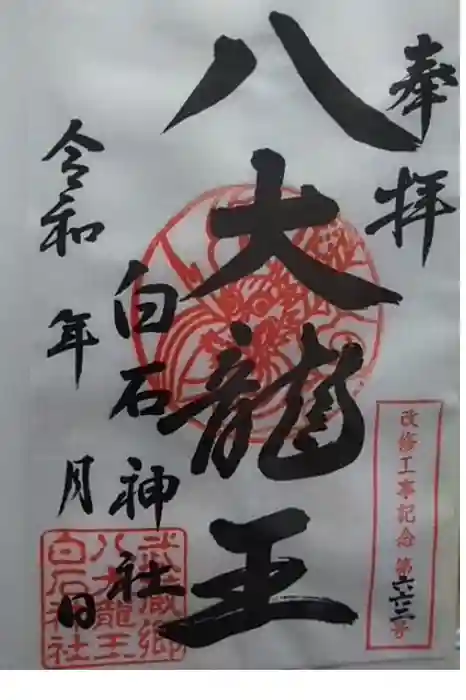 奉拝
八大龍王
白石神社
令和 年 月 日
改修工事記念 第六六二号
武蔵郷
八大龍王
白石神社